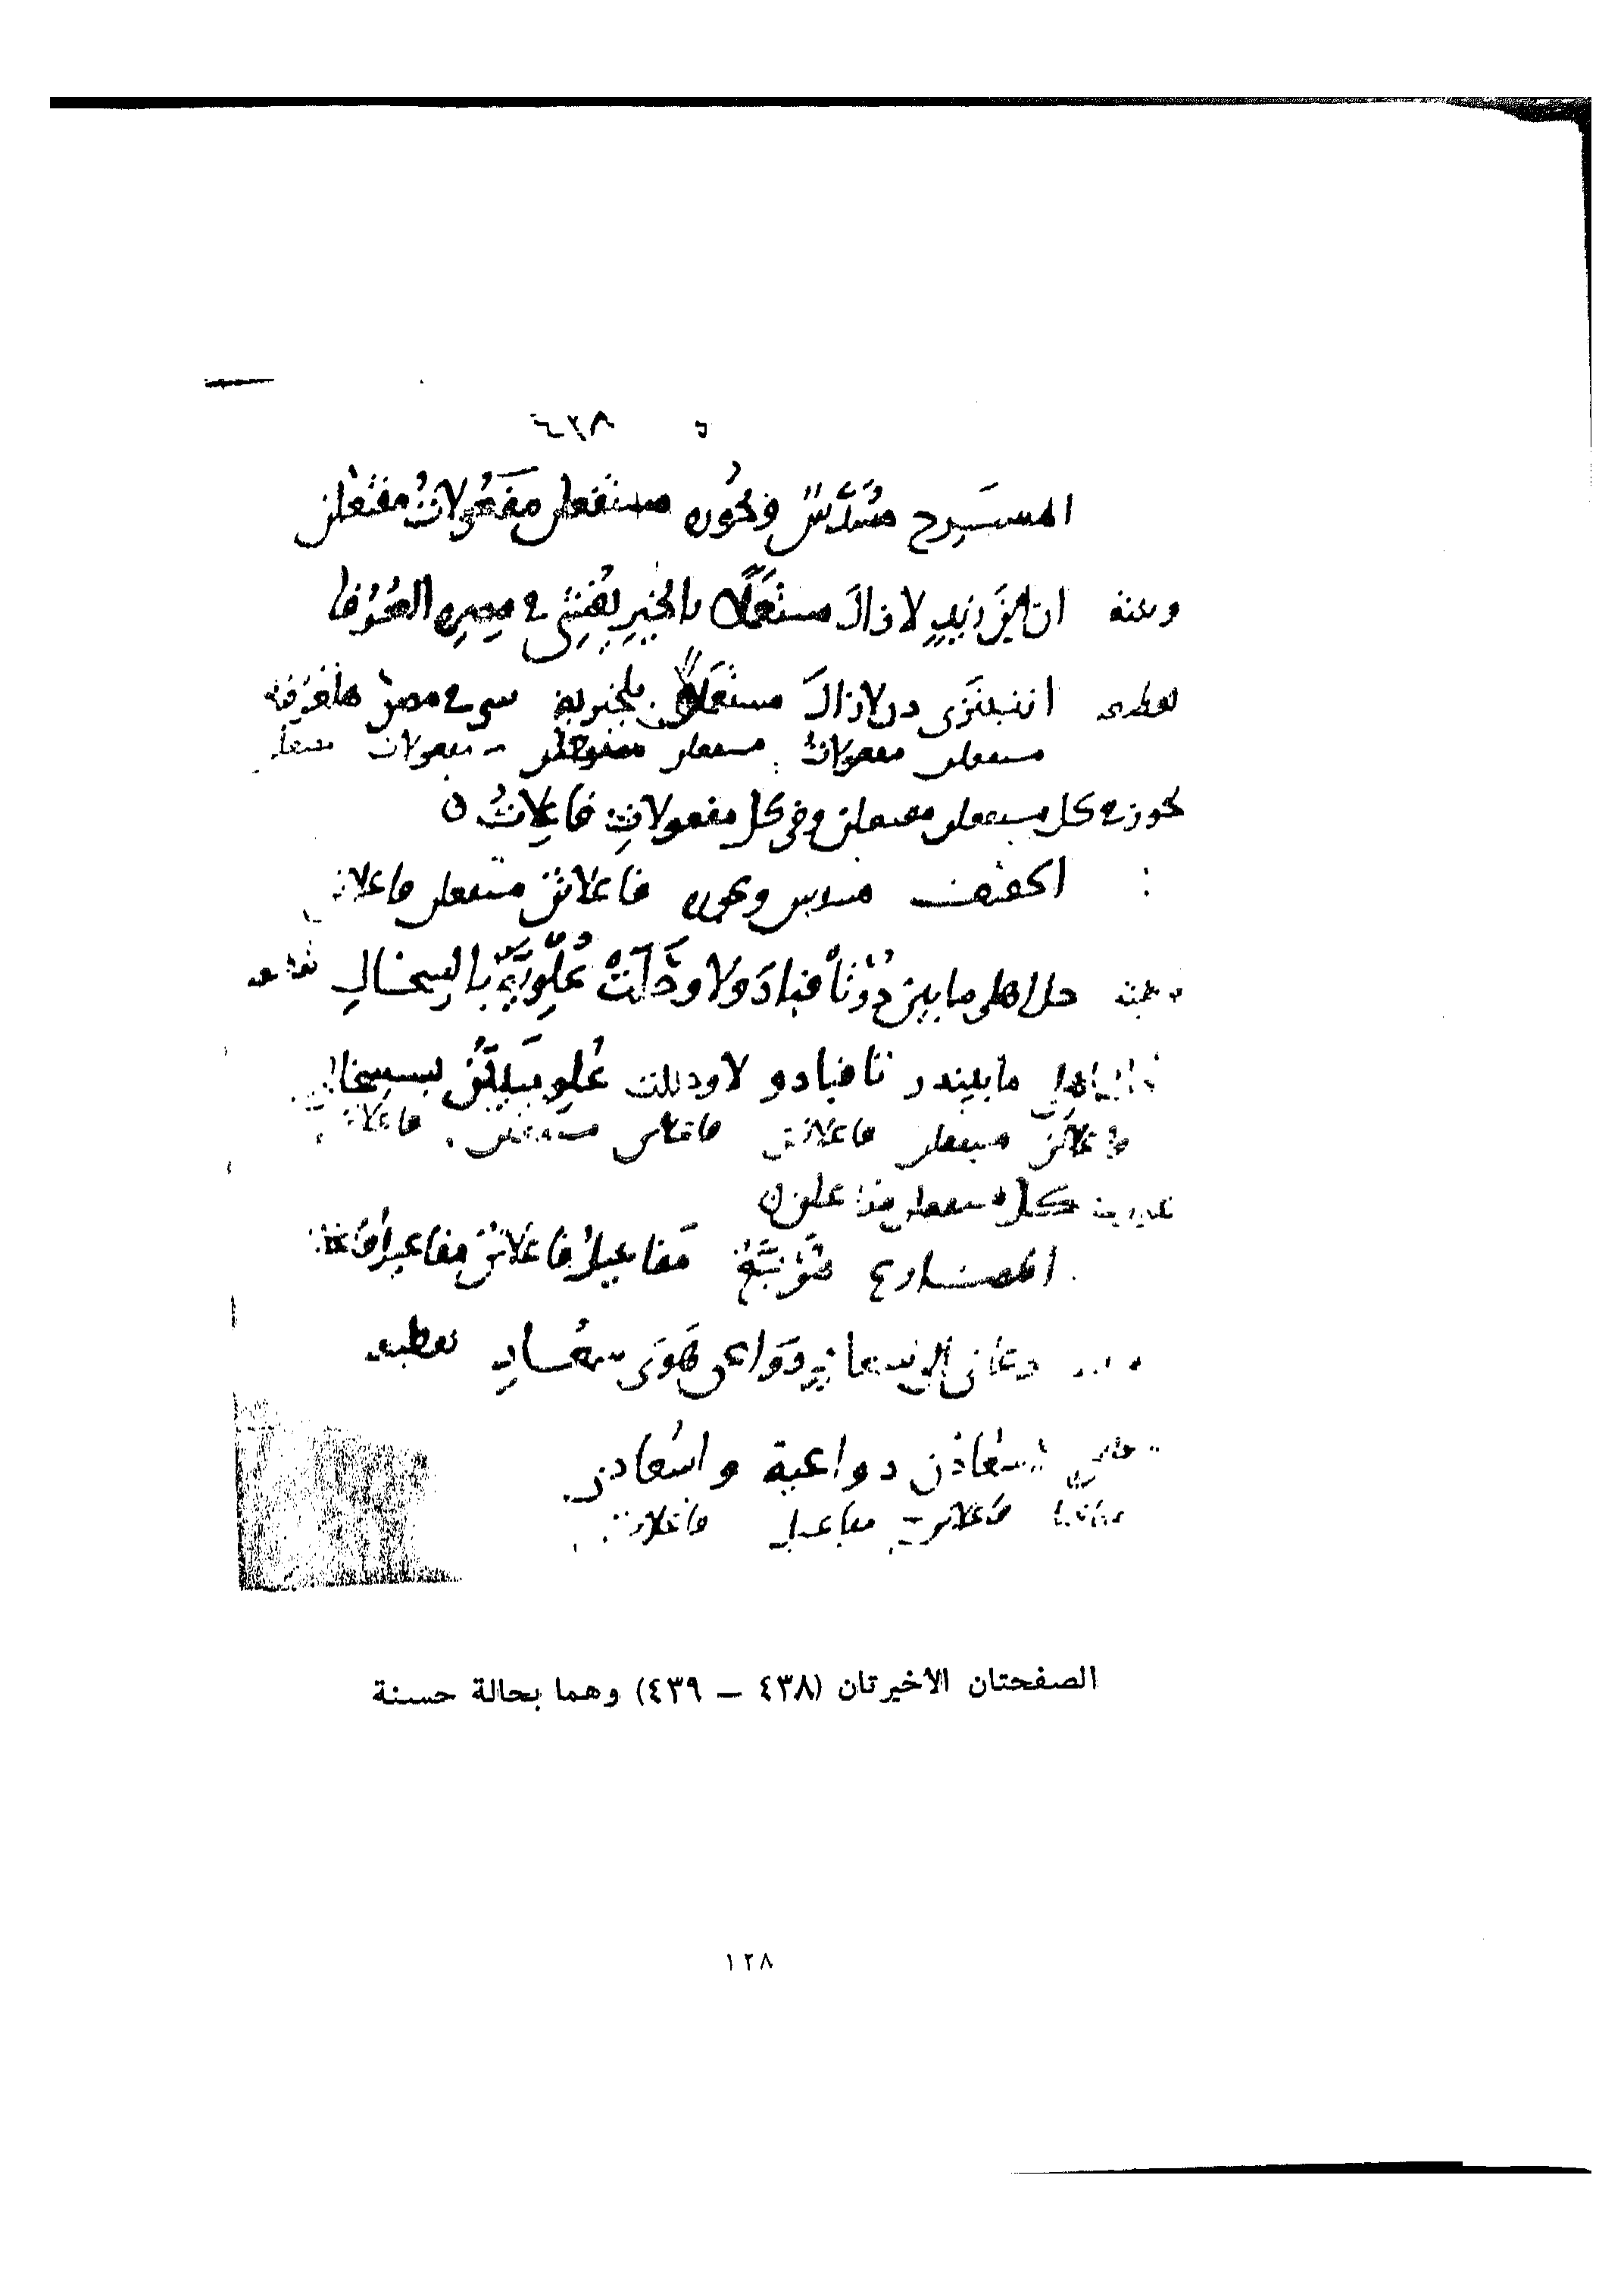 ٤٣٨
المنسَرح مُسَدَّسٌ ونحوُه مستفعلن مَفعُولاتُ مفتعلن
وبيته ان ابن زَيدٍ لا زالَ مستعمَلًا بالخيرِ يُفشِي في مصرِه العُرُفا
تقطيعه اننبنزَي دن لازالَ مستعملن بلخيريف شي في مصر هلعرفا
مستفعلن مفعولاتُ مستفعلن مستفعلن مفعولات مفتعلن
يجوز في كل مستفعلن مفتعلن وفي كل مفعولاتُ فاعلاتُ
الخفيف مسدس ونحوه فاعلاتن مستفعلن فاعلاتن
وبيته حل اهلي ما بين دُرْنَا فبادَولا وحَلَّتْ عُلْوِيَّةٌ بالسِخالِ تقطيعه
مابيندر نا فبادو لا وحللت عُلو بسسخالي
فاعلاتن مستفعلن فاعلاتن فاعلاتن مستفعلن فاعلاتن
كل مستفعلن مفاعلن
المضارع مُرَبَّعٌ مَفاعيلُ فاعلاتن مفاعيلُ فاعلاتن
دعاني الى سعادٍ دَوَاعي هَوَى سُعادِ تقطيعه
سُعادن دواعيه واسُعادن
فاعلاتن مفاعيل فاعلاتن
الصفحتان الأخيرتان (٤٣٨ – ٤٣٩) وهما بحالة حسنة
١٢٨